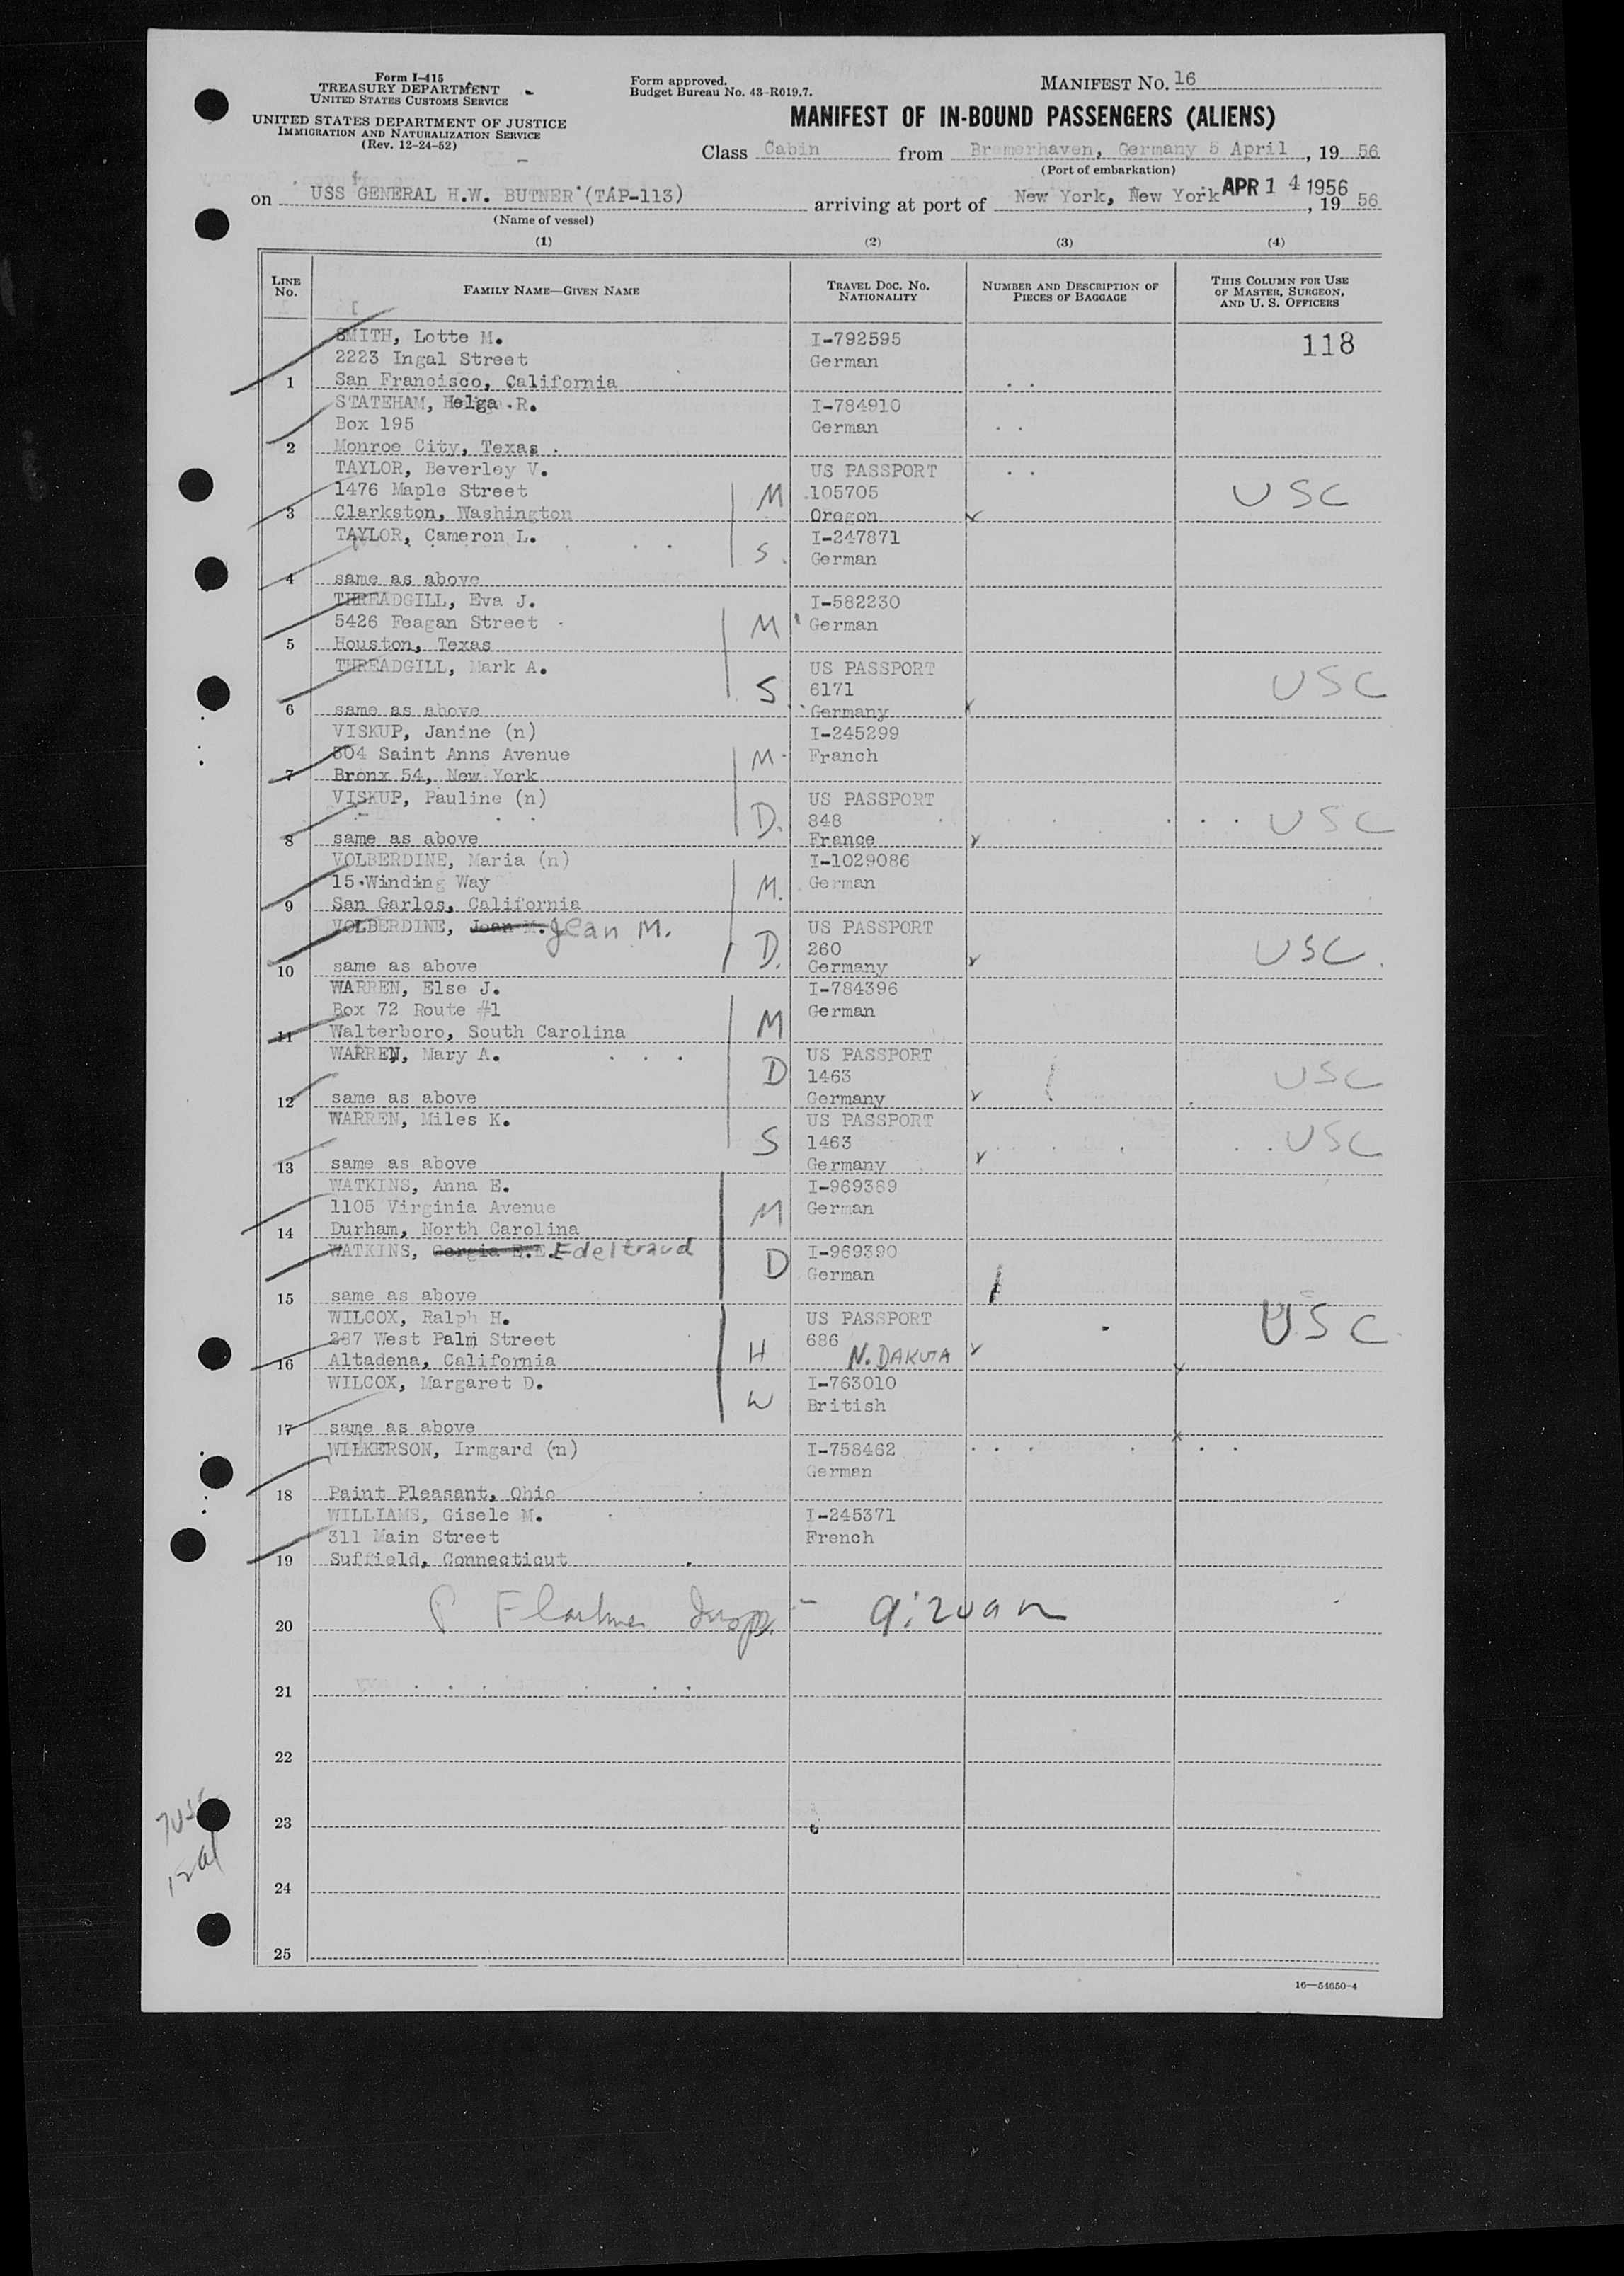 Form I-415
TREASURY DEPARTMENT
UNITED STATES CUSTOMS SERVICE
UNITED STATES DEPARTMENT OF JUSTICE
IMMIGRATION AND NATURALIZATION SERVICE
(Rev. 12-24-52)
Form approved.
Budget Bureau No. 43-R019.7.
MANIFEST No. 16
MANIFEST OF IN-BOUND PASSENGERS (ALIENS)
Class Cabin from Bremerhaven, Germany 5 April, 19 56
(Port of embarkation)
on USS GENERAL H.W. BUTNER (TAP-113) arriving at port of New York, New York APR 14 1956, 19 56
(Name of vessel)
(1) (2) (3) (4)
LINE No. FAMILY NAME—GIVEN NAME TRAVEL DOC. NO. NATIONALITY NUMBER AND DESCRIPTION OF PIECES OF BAGGAGE THIS COLUMN FOR USE OF MASTER, SURGEON, AND U. S. OFFICERS
SMITH, Lotte M. I-792595 118
2223 Ingal Street German
1 San Francisco, California
STATEHAM, Helga R. I-784910
Box 195 German
2 Monroe City, Texas
TAYLOR, Beverley V. US PASSPORT
1476 Maple Street M 105705 USC
3 Clarkston, Washington Oregon
TAYLOR, Cameron L. I-247871
S. German
4 same as above
THREADGILL, Eva J. I-582230
5426 Feagan Street M German
5 Houston, Texas
THREADGILL, Mark A. US PASSPORT
S 6171 USC
6 same as above Germany
VISKUP, Janine (n) I-245299
804 Saint Anns Avenue M Franch
7 Bronx 54, New York
VISKUP, Pauline (n) US PASSPORT
D. 848 USC
8 same as above France
VOLBERDINE, Maria (n) I-1029086
15 Winding Way M. German
9 San Garlos, California
VOLBERDINE, Joan M. Jean M. US PASSPORT
D. 260 USC.
10 same as above Germany
WARREN, Else J. I-784396
Box 72 Route #1 M German
11 Walterboro, South Carolina
WARREN, Mary A. US PASSPORT
D 1463 USC
12 same as above Germany
WARREN, Miles K. US PASSPORT
S 1463 USC
13 same as above Germany
WATKINS, Anna E. I-969389
1105 Virginia Avenue M German
14 Durham, North Carolina
WATKINS, Gorgia E. E. Edeltraud I-969390
D German
15 same as above
WILCOX, Ralph H. US PASSPORT USC
287 West Palm Street H 686 N. DAKOTA
16 Altadena, California
WILCOX, Margaret D. I-763010
W British
17 same as above
WILKERSON, Irmgard (n) I-758462
German
18 Paint Pleasant, Ohio
WILLIAMS, Gisele M. I-245371
311 Main Street French
19 Suffield, Connecticut
20
21
22
23
24
25
16—54650-4